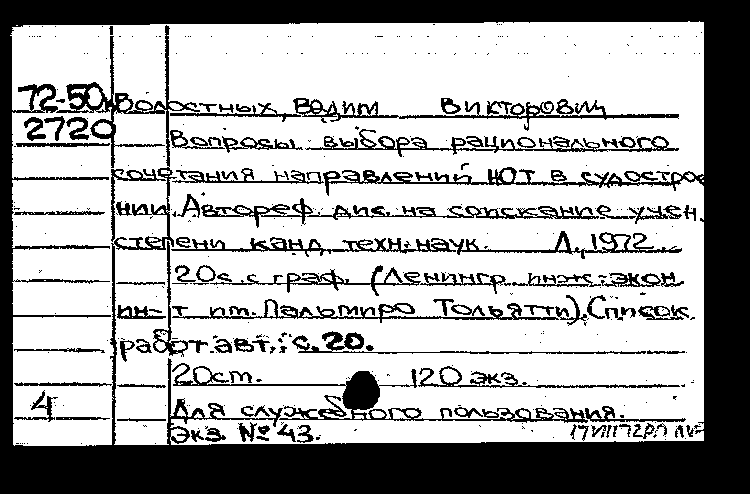 72-50к Волостных, Вадим Викторович
2720 Вопросы выбора рационального
сочетания направлений НОТ в судострое
нии. Автореф. дис. на соискание учен.
степени канд. техн. наук. Л., 1972.
20с. с граф. (Ленингр. инж.-экон.
ин-т им. Пальмиро Тольятти). Список
работ авт.: с. 20.
20ст. 120 экз.
4 Для служебного пользования.
Экз. № 43.